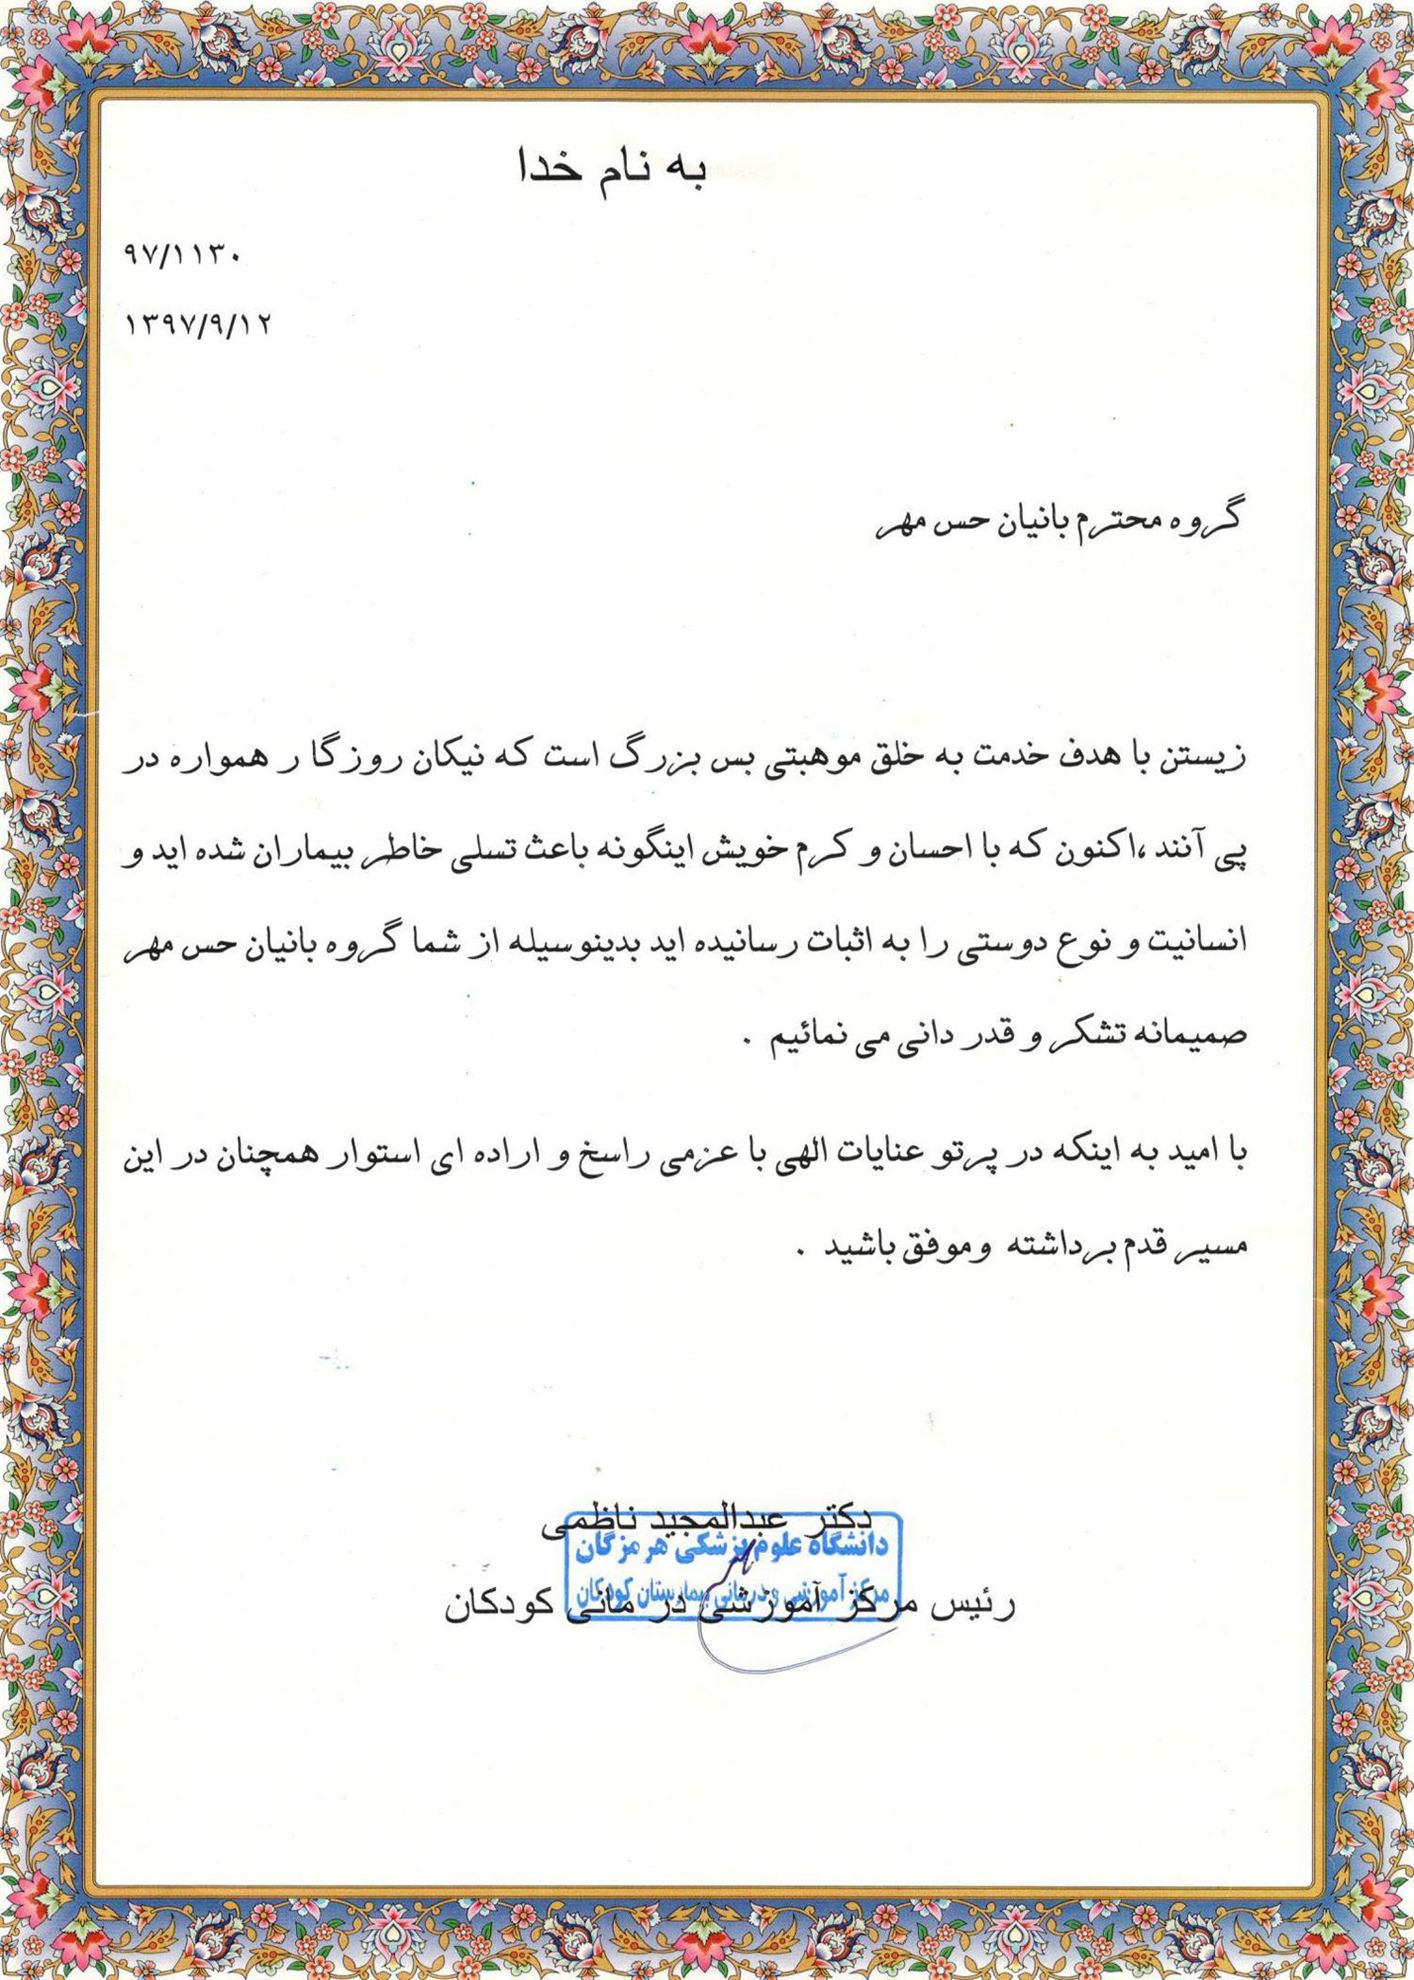 به نام خدا
۹۷/۱۱۳۰
۱۳۹۷/۹/۱۲
گروه محترم بانیان حس مهر
زیستن با هدف خدمت به خلق موهبتی بس بزرگ است که نیکان روزگا ر همواره در
پی آنند ،اکنون که با احسان و کرم خویش اینگونه باعث تسلی خاطر بیماران شده اید و
انسانیت و نوع دوستی را به اثبات رسانیده اید بدینوسیله از شما گروه بانیان حس مهر
صمیمانه تشکر و قدر دانی می نمائیم .
با امید به اینکه در پرتو عنایات الهی با عزمی راسخ و اراده ای استوار همچنان در این
مسیر قدم برداشته وموفق باشید .
دکتر عبدالمجید ناظمی
دانشگاه علوم پزشکی هرمزگان
مرکز آموزشی و درمانی بیمارستان کودکان
رئیس مرکز آموزشی در مانی کودکان